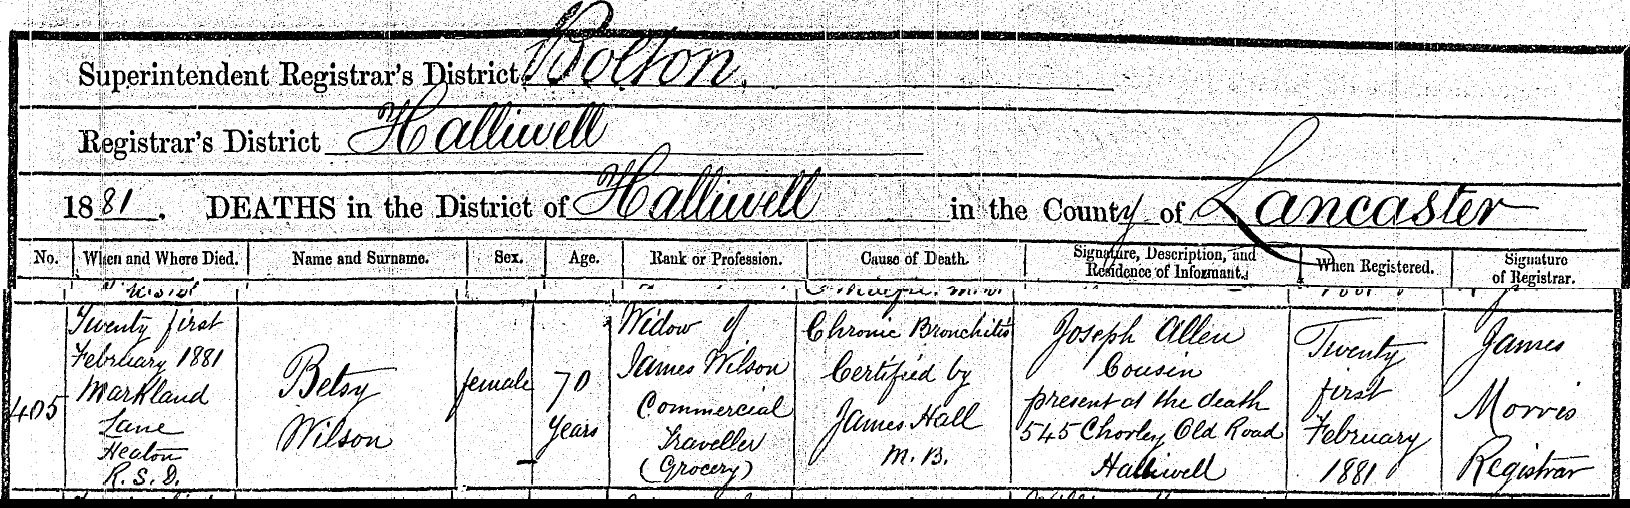 Superintendent Registrar's District Bolton.
Registrar's District Halliwell
1881. DEATHS in the District of Halliwell in the County of Lancaster
No. When and Where Died. Name and Surname. Sex. Age. Rank or Profession. Cause of Death. Signature, Description, and Residence of Informant. When Registered. Signature of Registrar.
405
Twenty first
February 1881
Markland
Lane
Heaton
R.S.D.
Betsy
Wilson
female
70
Years
Widow of
James Wilson
Commercial
Traveller
(Grocery)
Chronic Bronchitis
Certified by
James Hall
M.B.
Joseph Allen
Cousin
present at the death
545 Chorley Old Road
Halliwell
Twenty
first
February
1881
James
Morris
Registrar